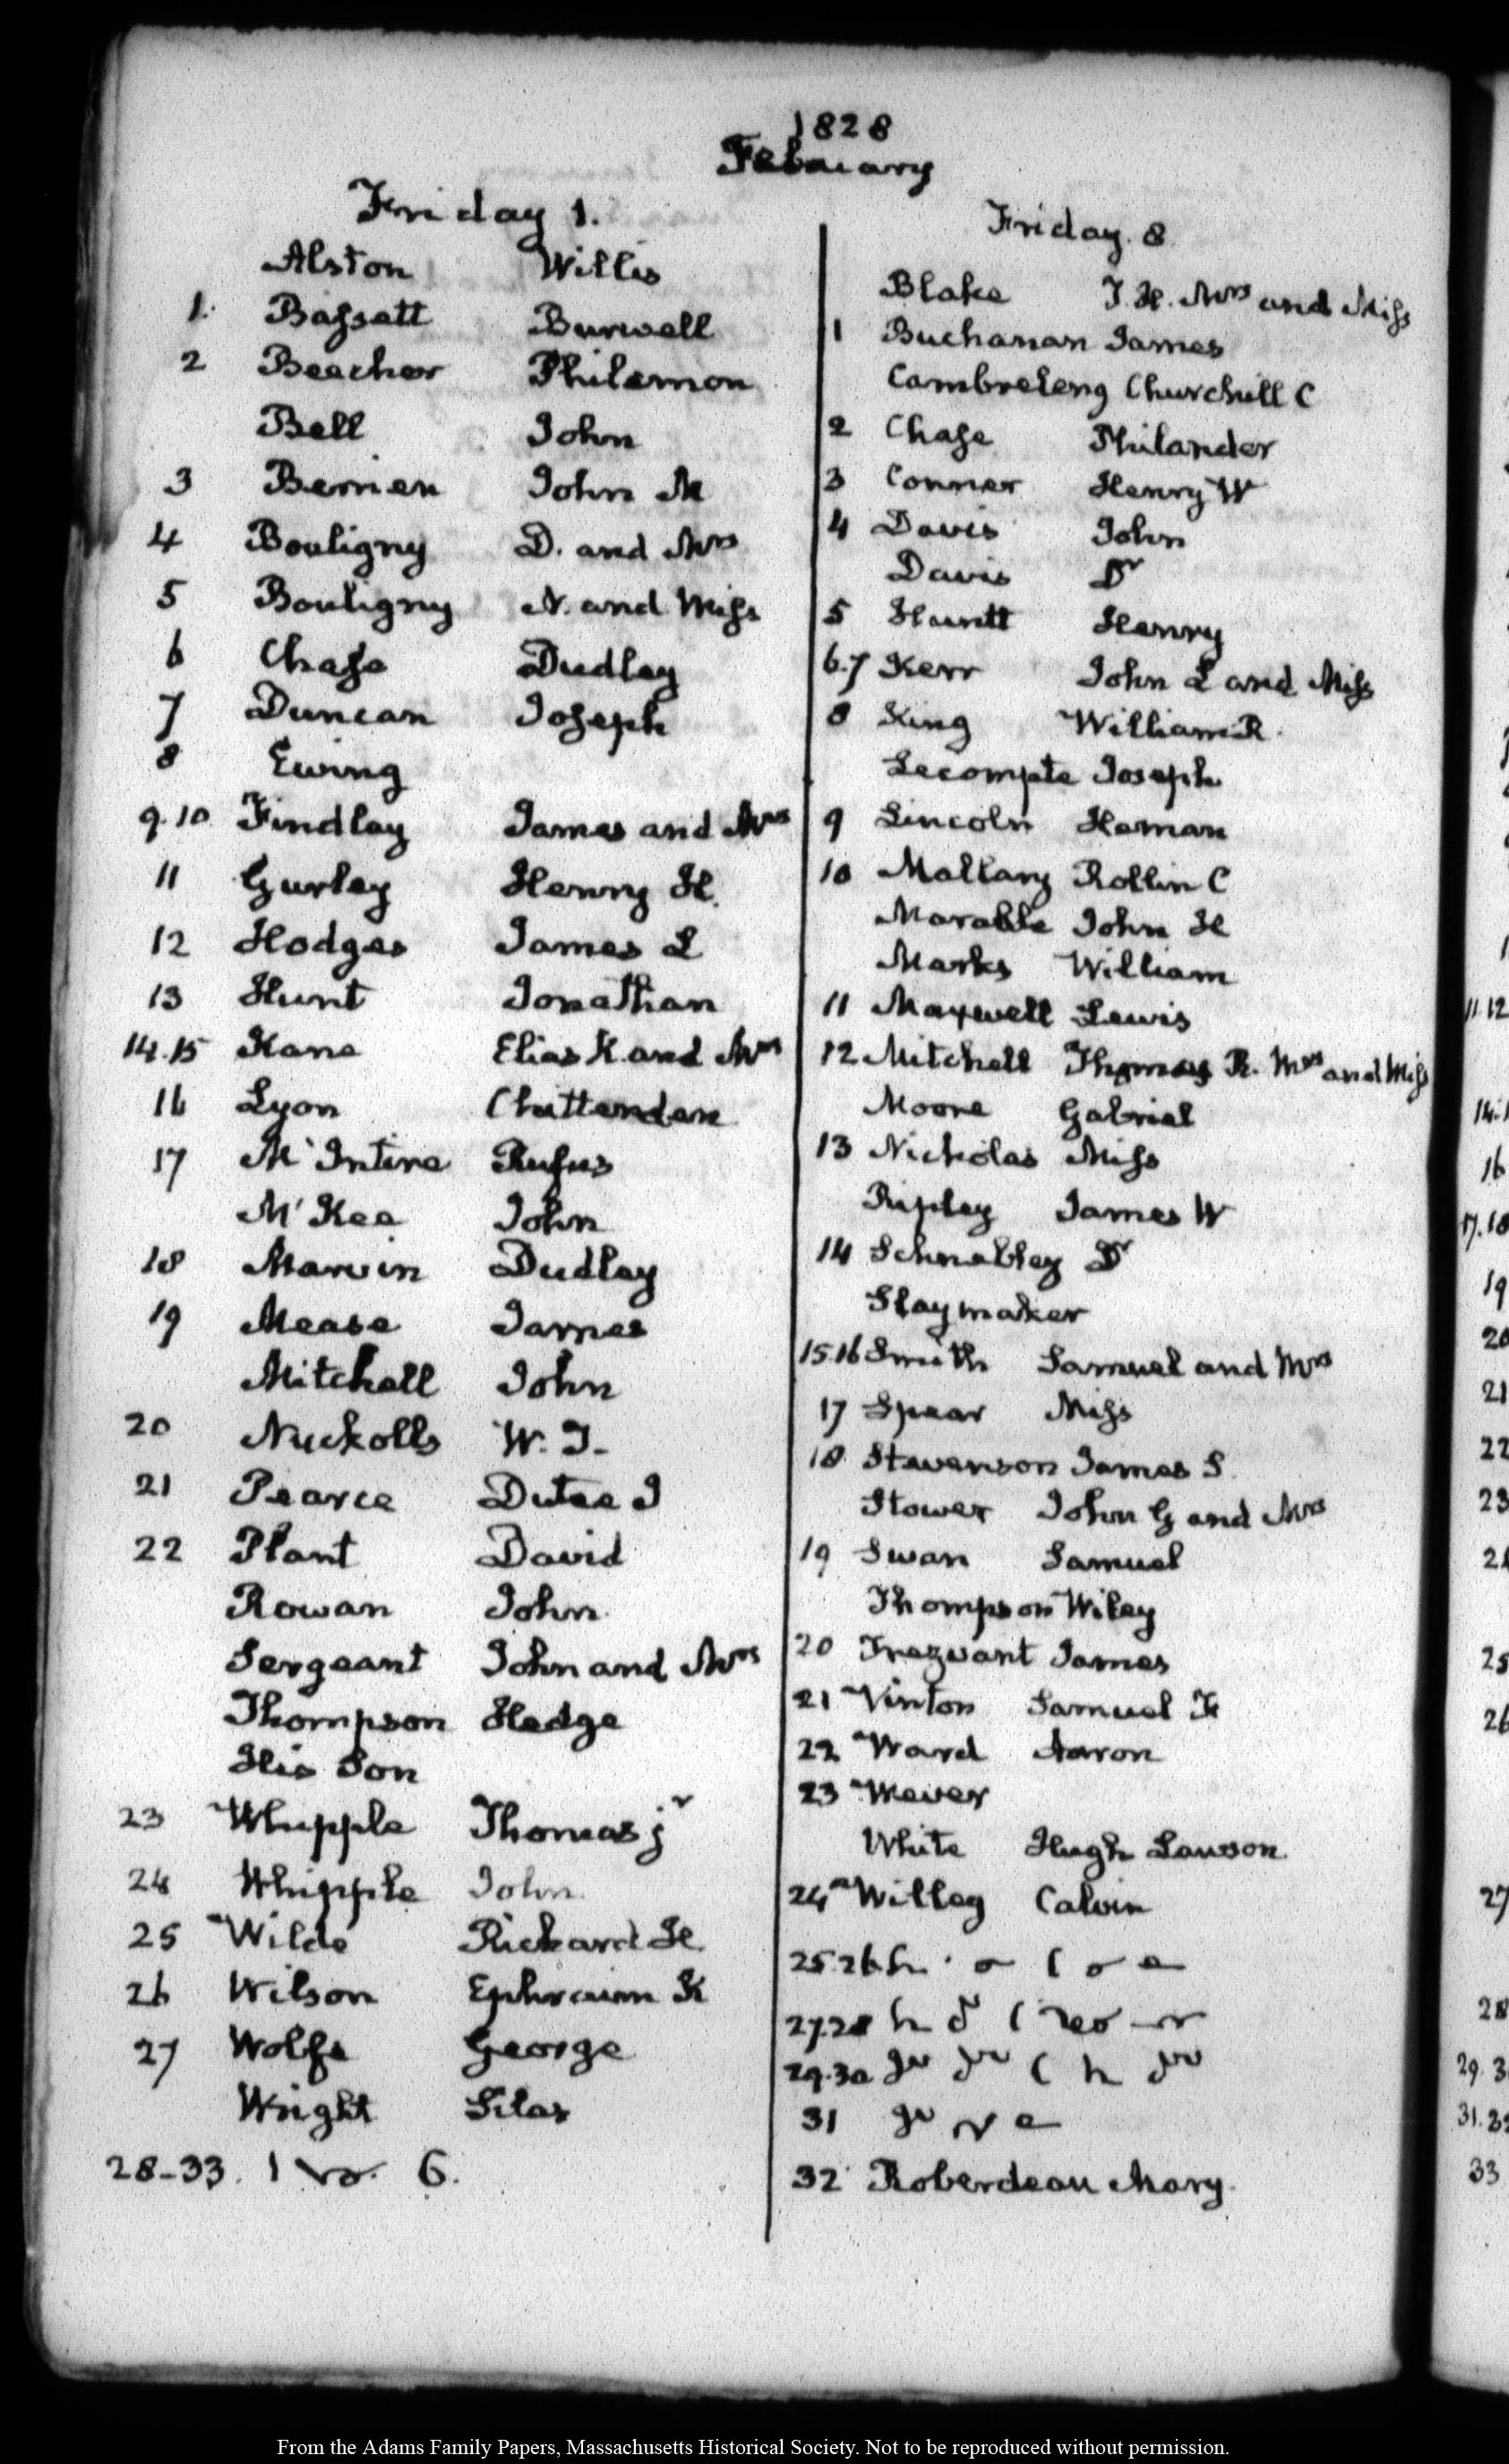 1828
February
Friday 1.
Alston Willis
1. Bassett Burwell
2 Beecher Philemon
Bell John
3 Berrien John M
4 Bouligny D. and Mrs
5 Bouligny N. and Miss
6 Chase Dudley
7 Duncan Joseph
8 Ewing
9.10 Findlay James and Mrs
11 Gurley Henry H.
12 Hodges James L
13 Hunt Jonathan
14.15 Kane Elias K. and Mrs
16 Lyon Chittenden
17 McIntire Rufus
McKee John
18 Marvin Dudley
19 Mease James
Mitchell John
20 Nuckolls W. T.
21 Pearce Dutee J
22 Plant David
Rowan John
Sergeant John and Mrs
Thompson Hedge
His Son
23 Whipple Thomas jr
24 Whipple John
25 Wilde Richard H.
26 Wilson Ephraim K
27 Wolfe George
Wright Silas
28-33. 6.
Friday. 8
Blake T. H. Mrs and Miss
1 Buchanan James
Cambreleng Churchill C
2 Chase Philander
3 Conner Henry W
4 Davis John
Davis Dr
5 Henry
6.7 Kerr John L and Miss
8 King William R.
Lecompte Joseph
9 Lincoln Heman
10 Mallary Rollin C
Marable John H
Marks William
11 Maxwell Lewis
12 Mitchell Thomas R. Mrs and Miss
Moore Gabriel
13 Nicholas Miss
Ripley James W
14 Schnebley Dr
Slaymaker
15.16 Smith Samuel and Mrs
17 Spear Miss
18 Stevenson James S
Stower John G and Mrs
19 Swan Samuel
Thompson Wiley
20 Trezvant James
21 Vinton Samuel F
22 Ward Aaron
23 Wever
White Hugh Lawson
24 Willey Calvin
25.26
27.28
29.30
31
32 Roberdeau Mary.
11.12
16
17.18
19
20
21
22
23
25
26
27
28
33
From the Adams Family Papers, Massachusetts Historical Society. Not to be reproduced without permission.